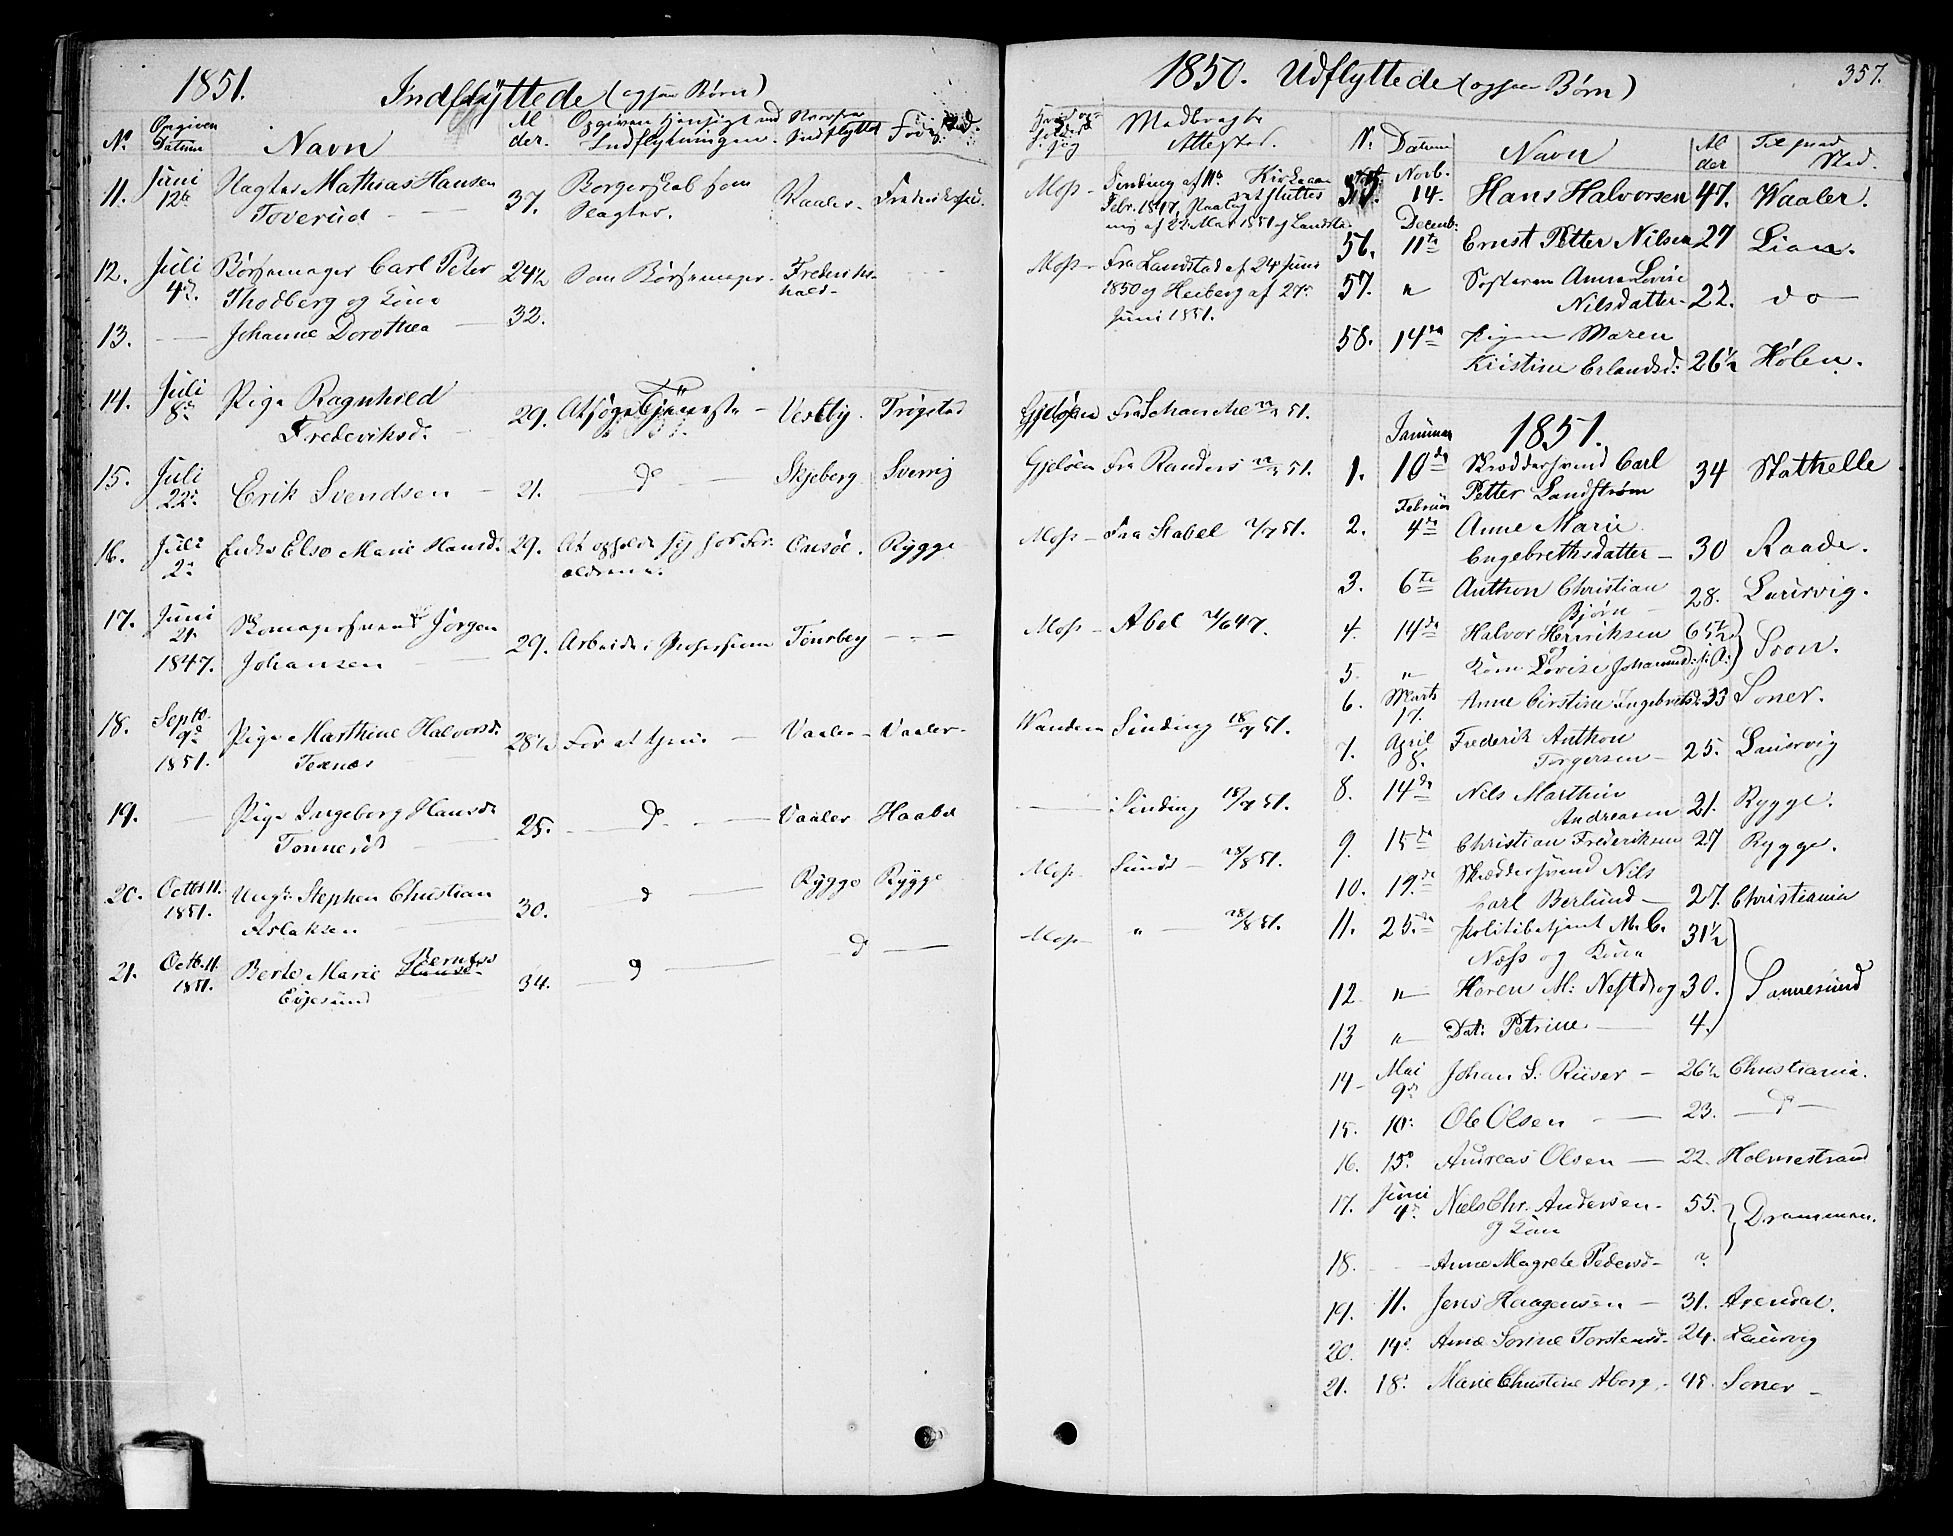 1851.
Indflyttede (ogsaa Børn)
No Opgiven Datum Navn Alder. Opgiven Hensigt med Indflytningen. Hvorfra Indflyttet Fødested.
11. Juni 12te Mathias Hansen
Toverud 37. Borgerskab som Slagter. Vaaler
12. Juli 4de Børsemager Carl Peter 24½ Som Børsemager. Frederikshald
Thodberg og Kone
13. Johanne Dorothea 32.
14. Juli 8de Pige Ragnhild
Frederiksd. 29. At søge Tjeneste Vestby. Trøgstad
15. Juli 22de Erik Svendsen 21. do Skjeberg Sverrig
16. Juli 2de Enke Else Marie Hansd. 29. At opholde sig hos Forældrene. Onsøe. Rygge
17. Juni 21. Skomagersvend Jørgen
1847. Johansen 29. Arbeide i Professionen Tønsberg
18. Septb. 9de Pige Marthine Halvorsd. 28½ For at tjene Vaaler Vaaler
1851. Texnæs
19. Pige Ingeborg Hansd. 25. do Vaaler Haabøl
Tonnerud
20. Octb. 11. Ungk. Stephen Christian Rygge Rygge
1851. Aslaksen 30. do
21. Octb. 11. Berte Marie Berntsd.
1851. Evjesund 34. do do
1850. Udflyttede (ogsaa Børn) 357.
Medbragte Attester. N. Datum Navn Alder Til hvad Sted.
Moss Sinding af 11te
Febr. 1847
af 22 Mai 1851 af Landstad
Moss Fra Landstad af 24 Juni
1850 og Heiberg af 27de
Juni 1851.
Gjeløen Fra Schanche 51.
Gjeløen Fra Randers 51.
Moss Fra Stabel 2/7 51.
Moss Abel 21/6 47.
Vandem Sinding 18/7 51.
Sinding 18/7 51.
Moss Sunds 28/8 51.
Moss " 28/8 51.
Novb.
14. Hans Halvorsen 47. Waaler.
Decemb:
56. 11te Ernst Petter Nilsen 27 Lian.
57. " Søsteren Anne Lovise
Nilsdatter 22. do
58. 14de Pigen Maren
Kristine Erlandsd: 26½ Hølen.
1851.
Januar
1. 10de Skræddersvend Carl 34 Stathelle
Petter Landstrøm
Februar
2. 4de Anne Marie
Engebrethsdatter 30 Raade.
3. 6te Anthon Christian
Bjørn 28. Laurvig.
4. 14de Halvor Henriksen 65½ Soon.
og
5. " Kone Lovise Johannesd:
6. Marts 17. Anne Cirstine Ingebretsd. 33 Soner.
7. April 8. Frederik Anthon
Torgersen 25. Laurvig
8. 14de Nils Marthin
Andreasen 21. Rygge.
9. 15de Christian Frederiksen 27 Rygge.
10. 19.de Skræddersvend Nils
Carl Berlund 27. Christiania
11. 25de Politibetjent M. C. 31½
Næss og Kone
12 " Maren M: Næss og 30. Sannesund
13 " Dat: Petrine 4.
14 Mai 9de Johan L: Riiser 26½ Christiania.
15. 10. Ole Olsen 23. do
16. 15. Andreas Olsen 22. Holmestrand
17. Juni 4de Niels Chr. Andersen 55. Drammen.
og Kone
18. Anne Magrete Pedersd ?
19. 11. Jens Haagensen 31. Arendal.
20. 14. Anne Sorine Torstensd. 24. Laurvig
21. 18. Marie Christine Aborg. 45. Soner